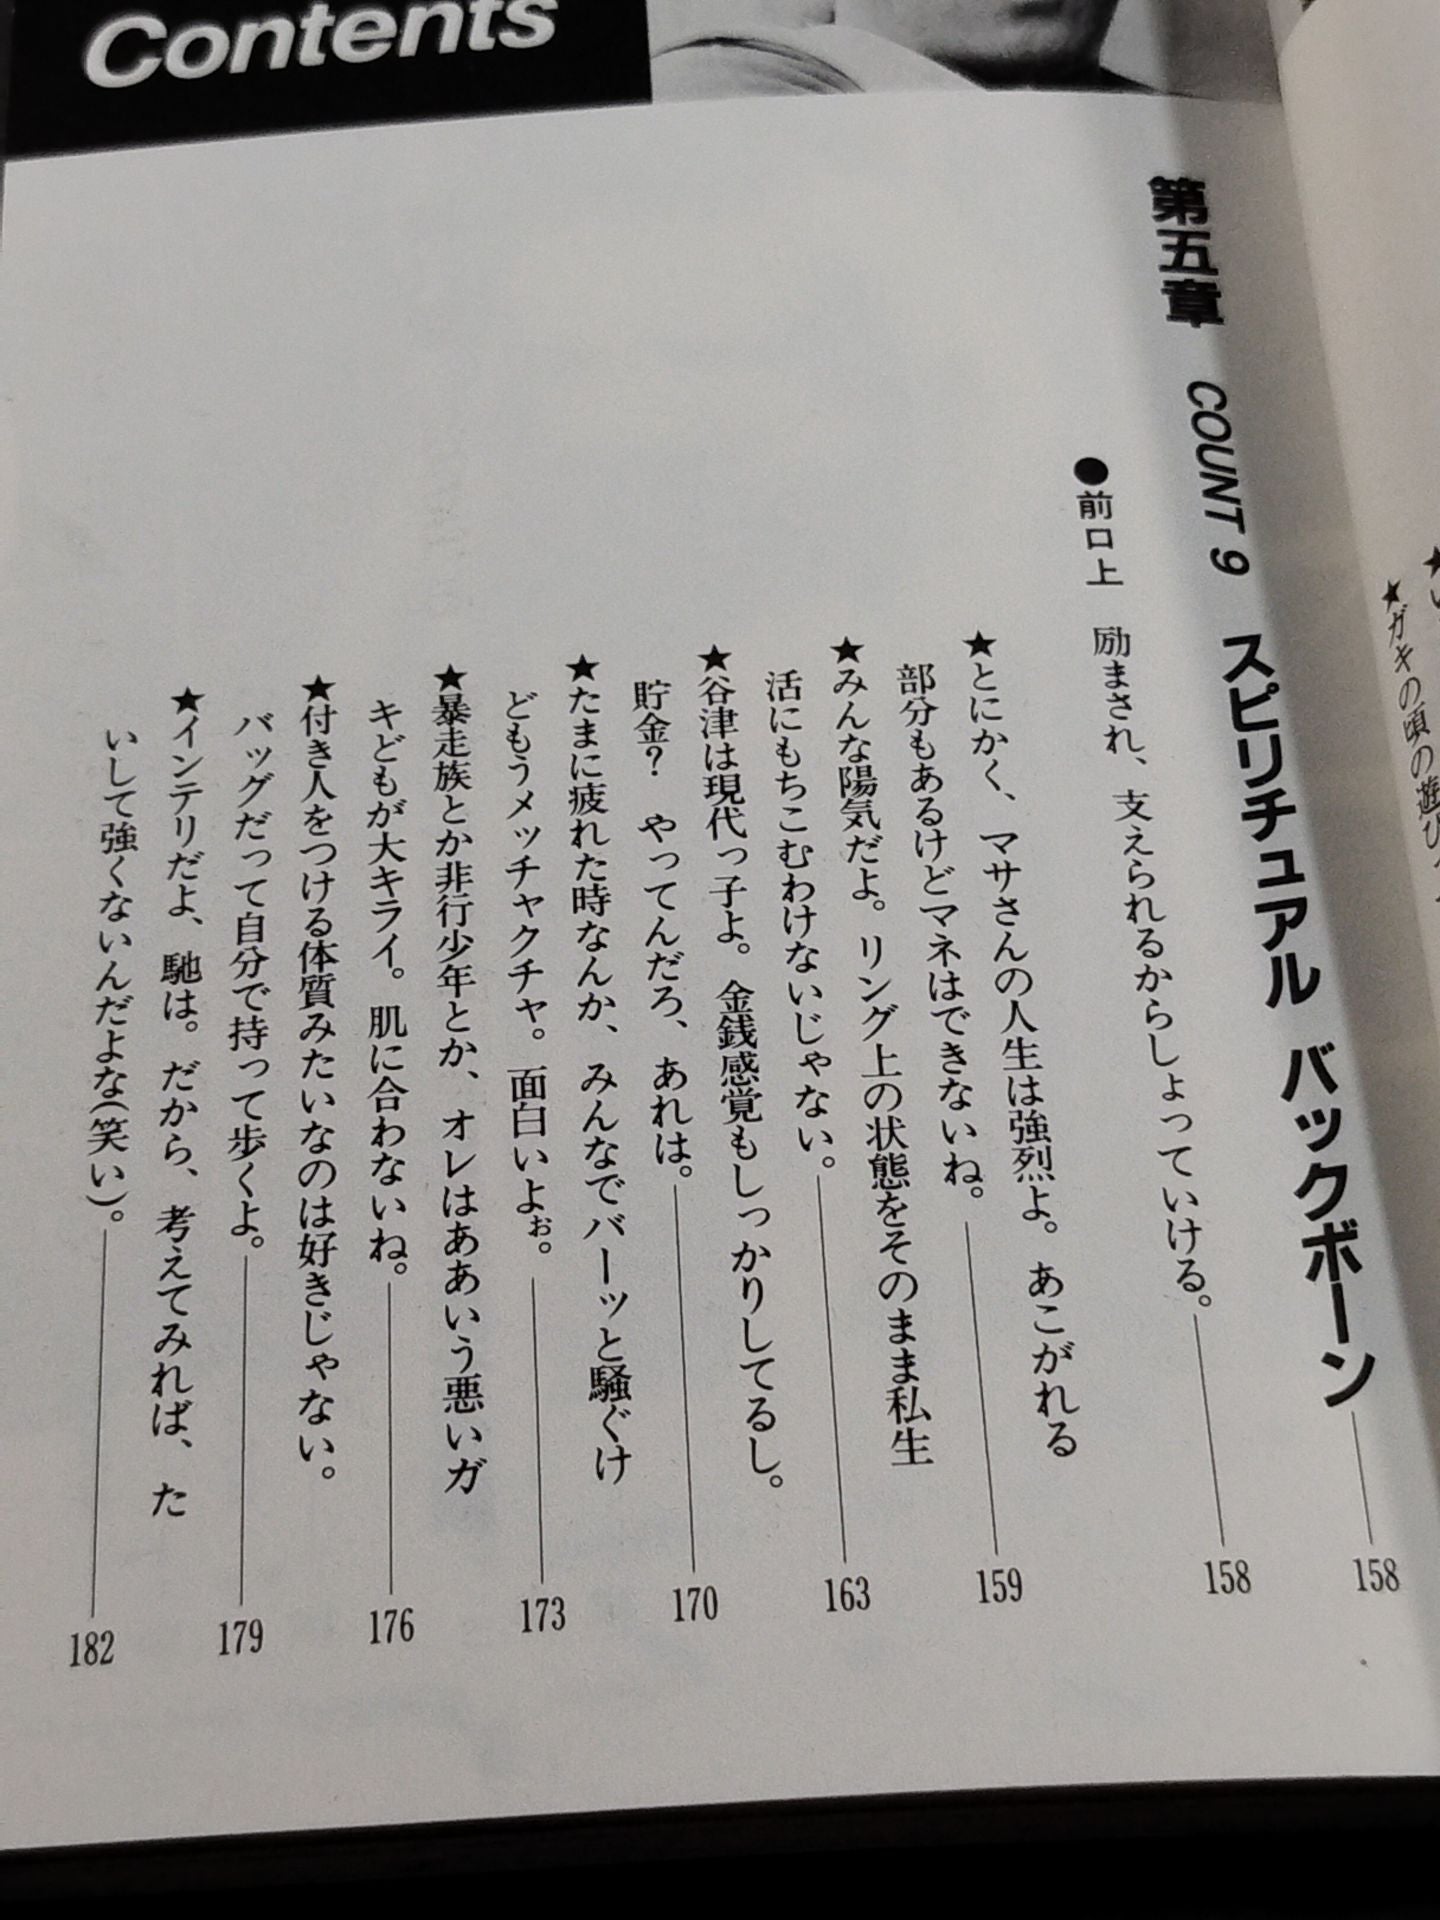 Contents
★ガキの頃の遊び
第五章 COUNT 9 スピリチュアル バックボーン 158
●前口上 励まされ、支えられるからしょっていける。 158
★とにかく、マサさんの人生は強烈よ。あこがれる
部分もあるけどマネはできないね。 159
★みんな陽気だよ。リング上の状態をそのまま私生
活にもちこむわけないじゃない。 163
★谷津は現代っ子よ。金銭感覚もしっかりしてるし。
貯金? やってんだろ、あれは。 170
★たまに疲れた時なんか、みんなでバーッと騒ぐけ
どもうメッチャクチャ。面白いよぉ。 173
★暴走族とか非行少年とか、オレはああいう悪いガ
キどもが大キライ。肌に合わないね。 176
★付き人をつける体質みたいなのは好きじゃない。
バッグだって自分で持って歩くよ。 179
★インテリだよ、馳は。だから、考えてみれば、た
いして強くないんだよな(笑い)。 182